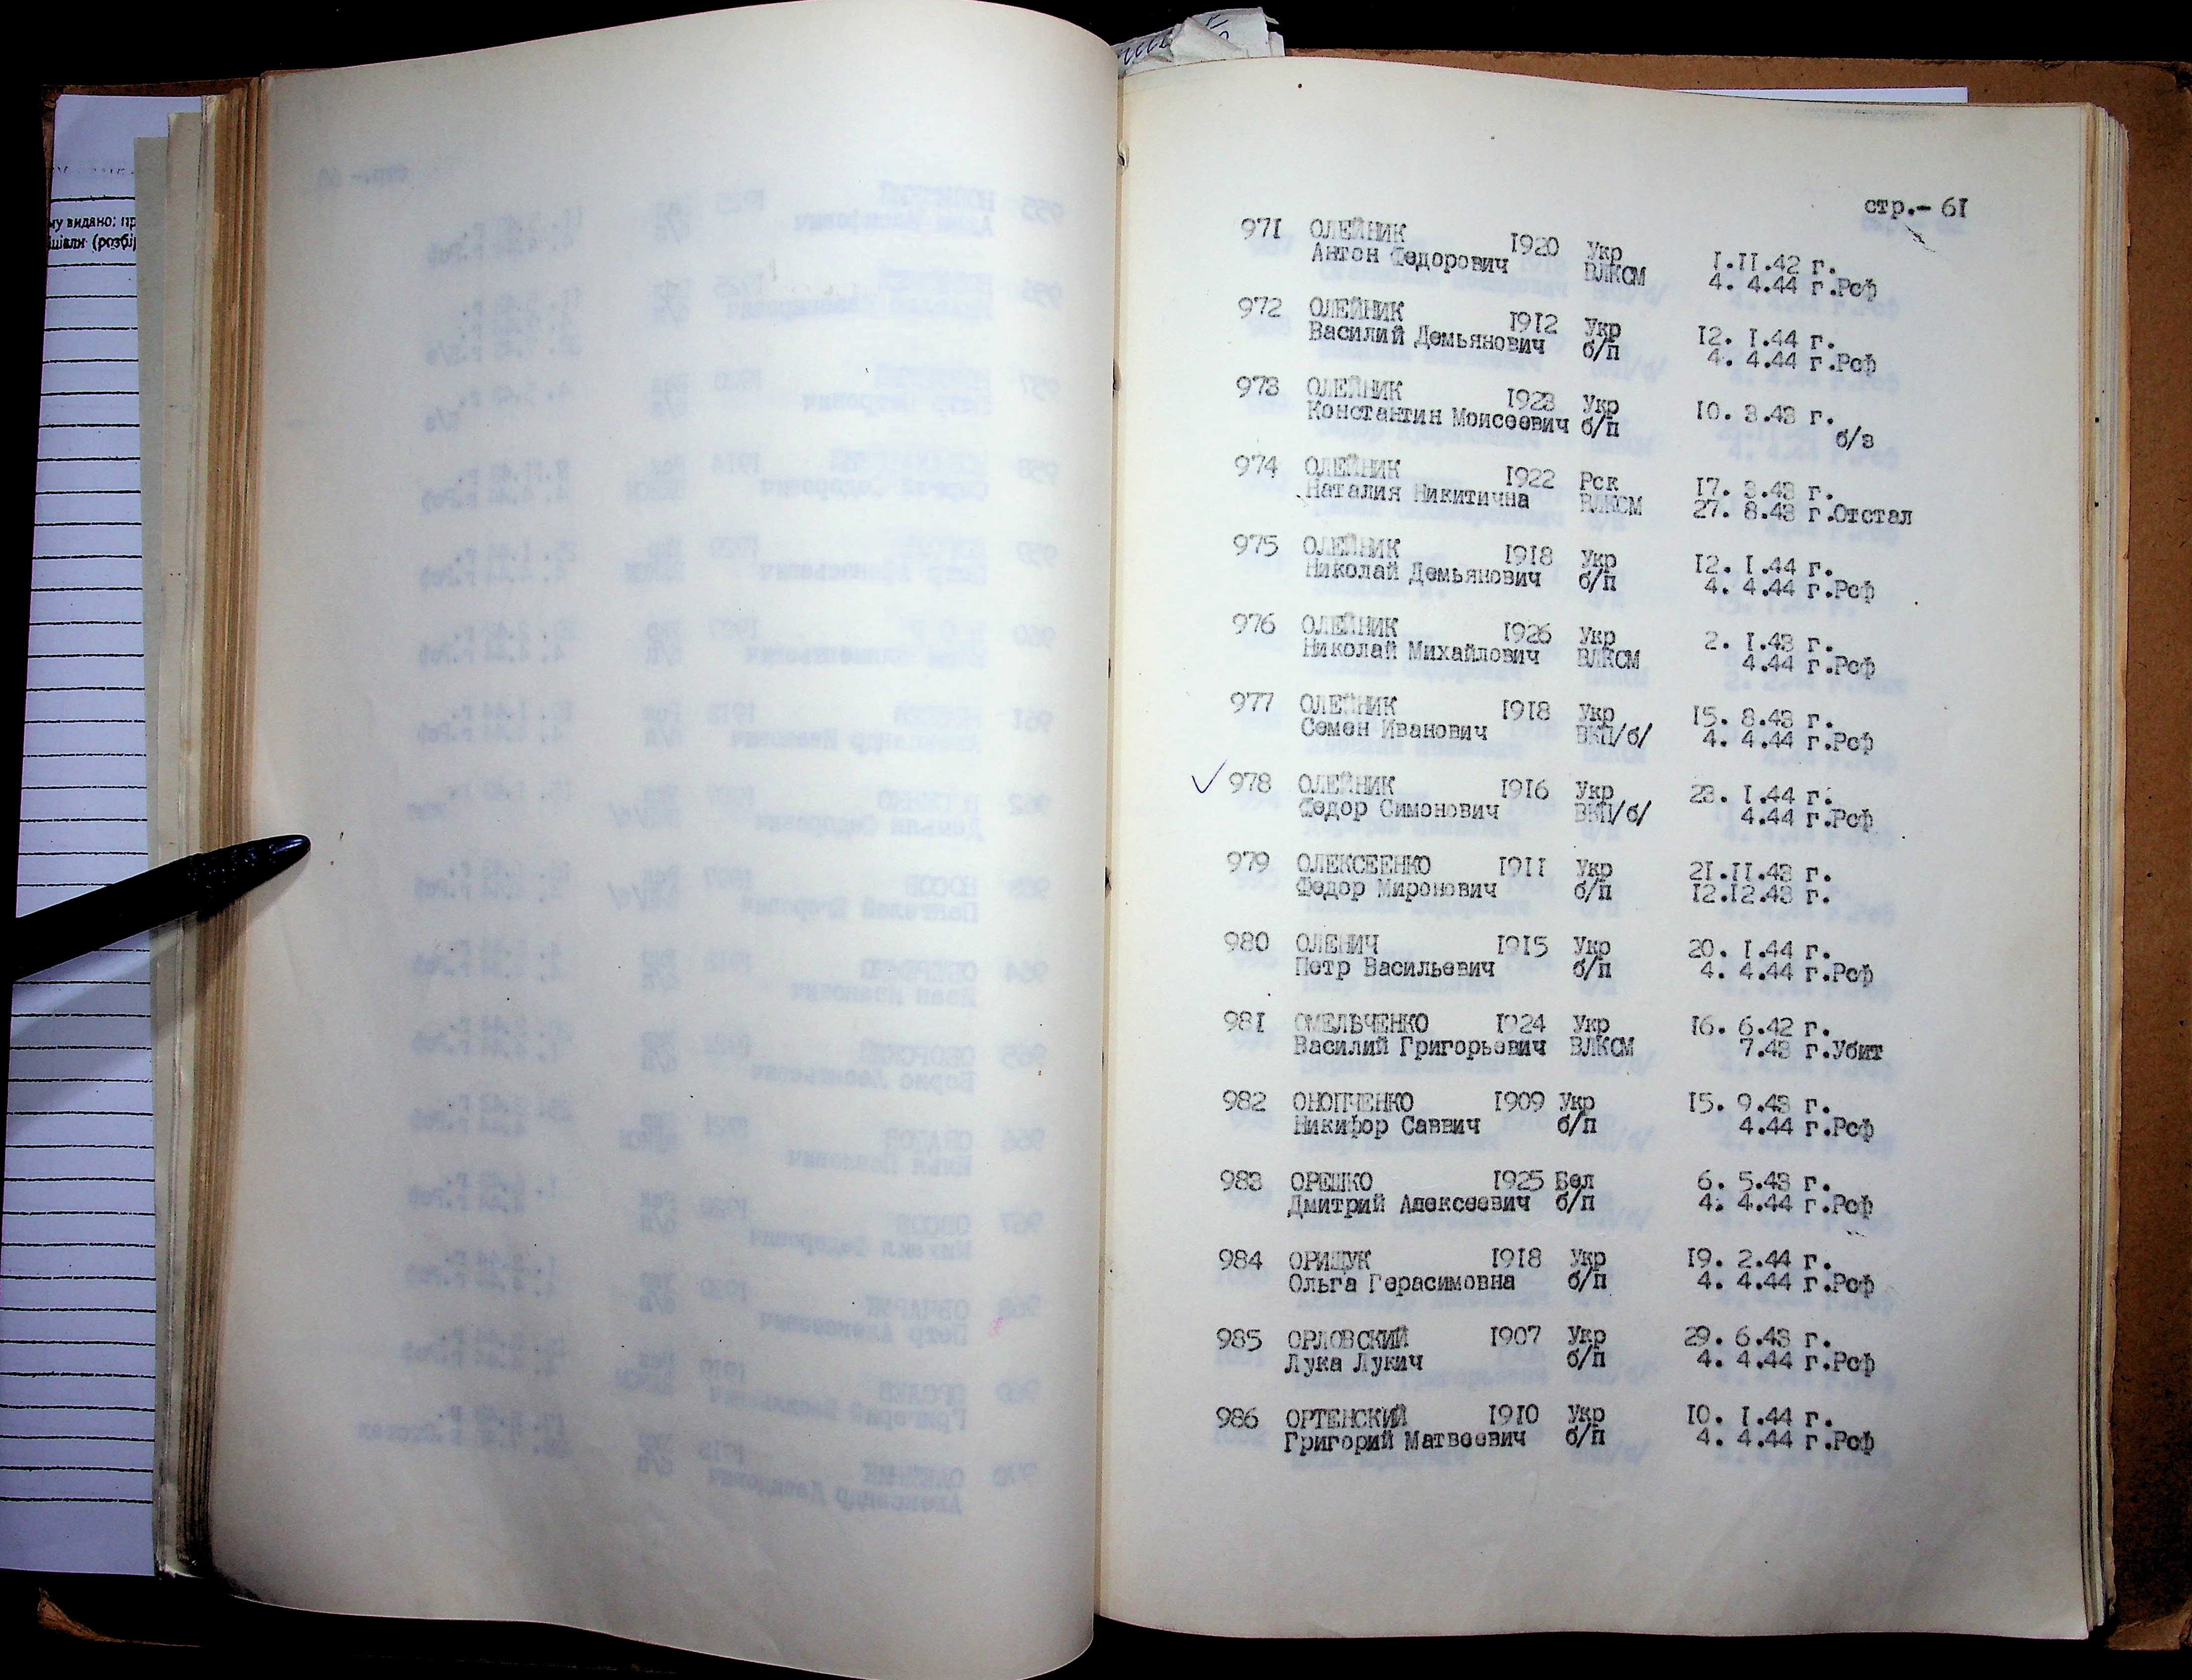 му видано; пр
стр.- 61
971 ОЛЕЙНИК 1920 Укр 1.11.42 г.
Антон Федорович ВЛКСМ 4. 4.44 г.Рсф
972 ОЛЕЙНИК 1912 Укр 12. 1.44 г.
Василий Демьянович б/п 4. 4.44 г.Рсф
973 ОЛЕЙНИК 1923 Укр 10. 3.43 г.
Константин Моисеевич б/п б/з
974 ОЛЕЙНИК 1922 Рск 17. 3.43 г.
Наталия Никитична ВЛКСМ 27. 8.43 г.Отстал
975 ОЛЕЙНИК 1918 Укр 12. 1.44 г.
Николай Демьянович б/п 4. 4.44 г.Рсф
976 ОЛЕЙНИК 1926 Укр 2. 1.43 г.
Николай Михайлович ВЛКСМ 4.44 г.Рсф
977 ОЛЕЙНИК 1918 Укр 15. 8.43 г.
Семен Иванович ВКП/б/ 4. 4.44 г.Рсф
✓ 978 ОЛЕЙНИК 1916 Укр 23. 1.44 г.
Федор Симонович ВКП/б/ 4.44 г.Рсф
979 ОЛЕКСЕЕНКО 1911 Укр 21.11.43 г.
Федор Миронович б/п 12.12.43 г.
980 ОЛЕНИЧ 1915 Укр 20. 1.44 г.
Петр Васильевич б/п 4. 4.44 г.Рсф
981 ОМЕЛЬЧЕНКО 1924 Укр 16. 6.42 г.
Василий Григорьевич ВЛКСМ 7.43 г.Убит
982 ОНОПЧЕНКО 1909 Укр 15. 9.43 г.
Никифор Саввич б/п 4.44 г.Рсф
983 ОРЕШКО 1925 Бел 6. 5.43 г.
Дмитрий Алексеевич б/п 4. 4.44 г.Рсф
984 ОРИЩУК 1918 Укр 19. 2.44 г.
Ольга Герасимовна б/п 4. 4.44 г.Рсф
985 ОРЛОВСКИЙ 1907 Укр 29. 6.43 г.
Лука Лукич б/п 4. 4.44 г.Рсф
986 ОРТЕНСКИЙ 1910 Укр 10. 1.44 г.
Григорий Матвеевич б/п 4. 4.44 г.Рсф